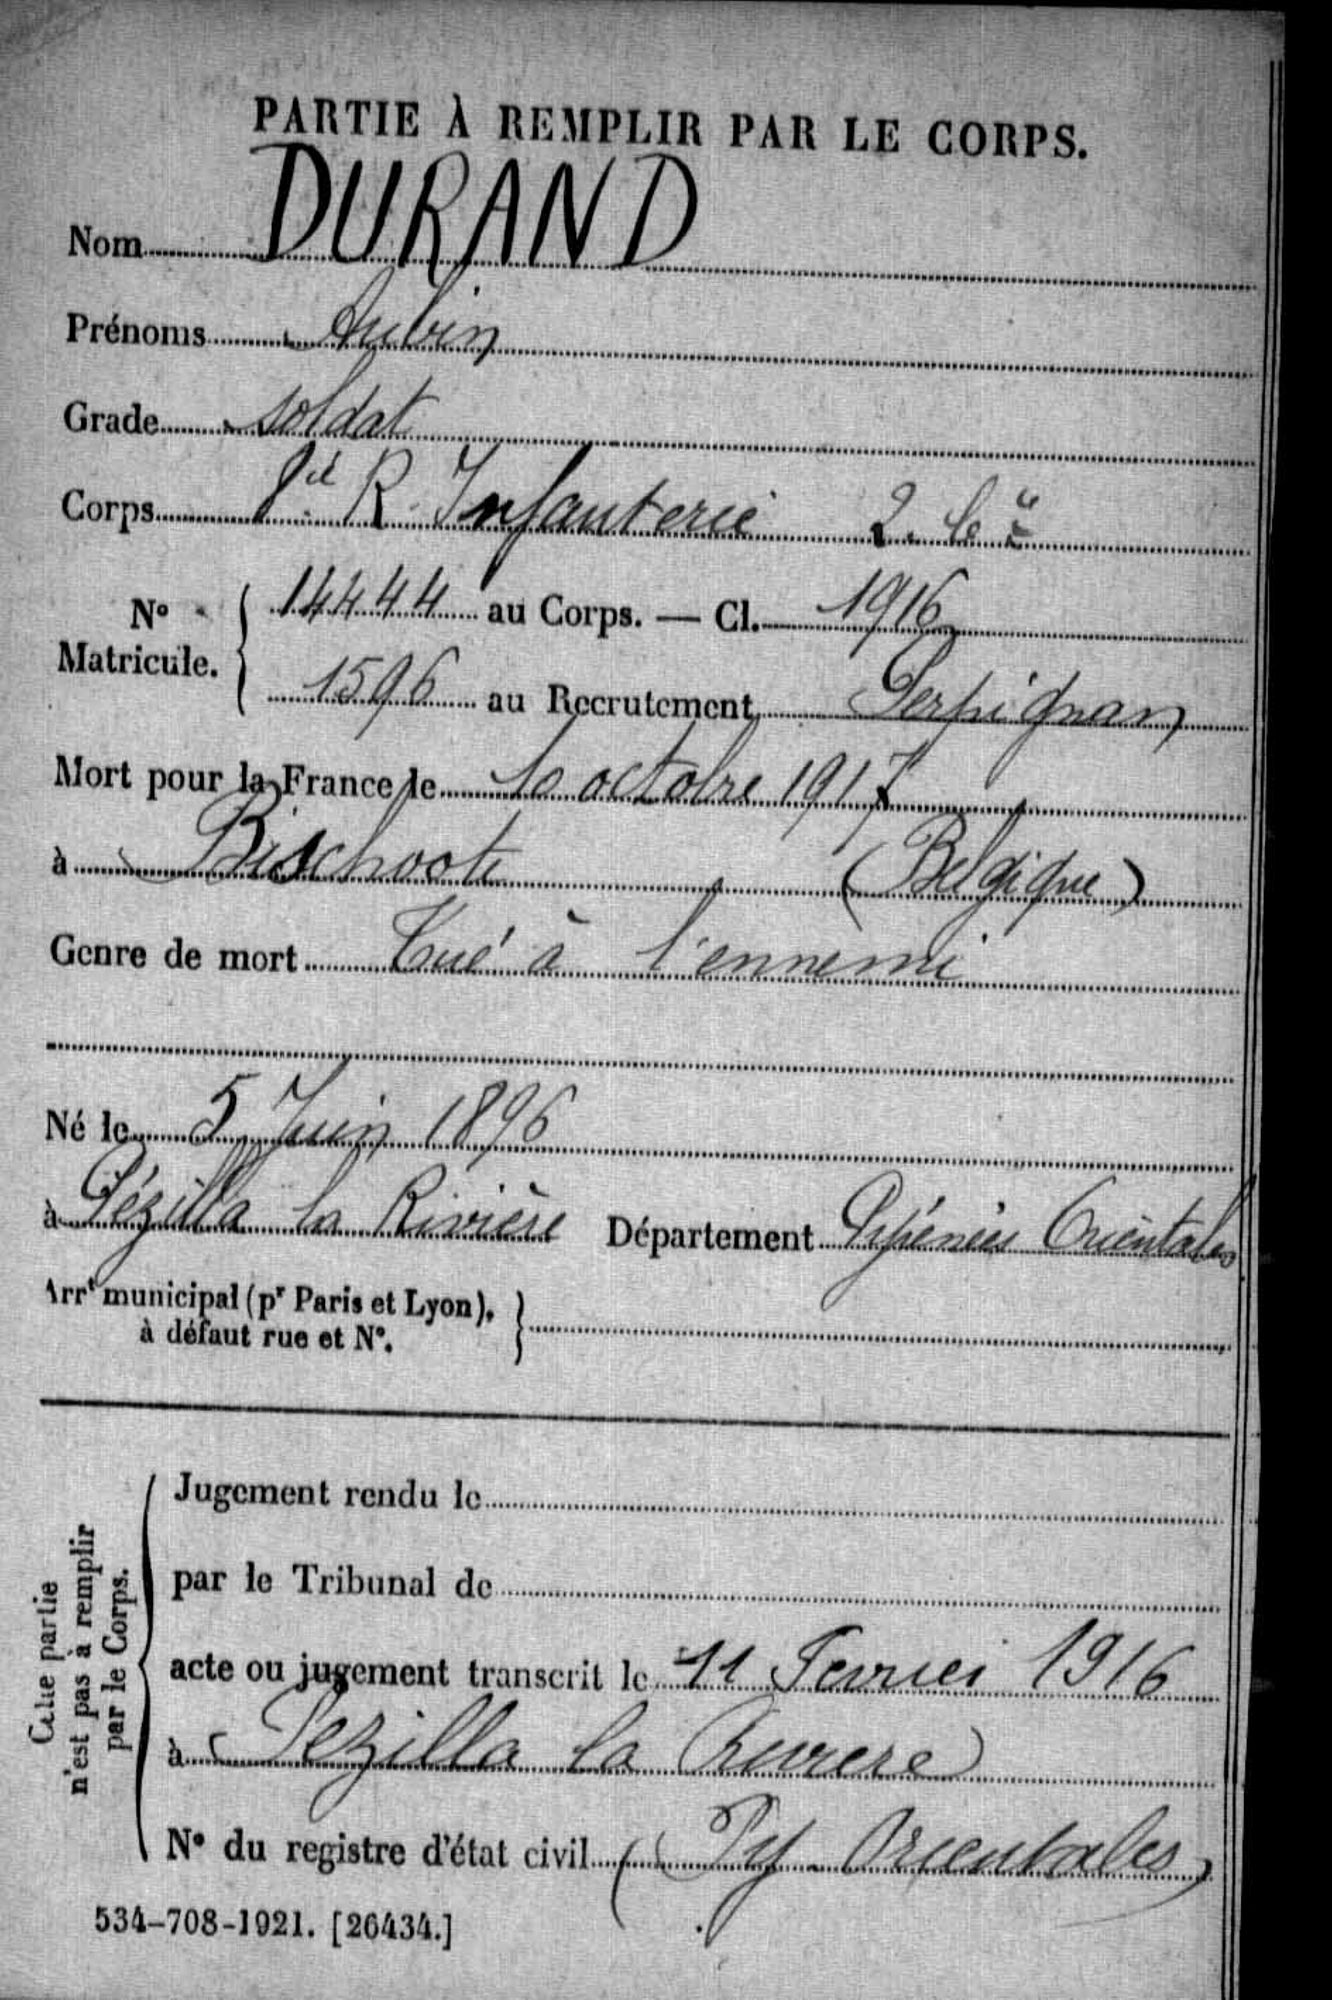 PARTIE À REMPLIR PAR LE CORPS.
Nom DURAND
Prénoms Aubin
Grade soldat
Corps 8è R. Infanterie 2. Cie
No Matricule. { 14444 au Corps. — Cl. 1916
1596 au Recrutement Perpignan
Mort pour la France le 10 octobre 1917
à Bischoote (Belgique)
Genre de mort Tué à l'ennemi
Né le 5 Juin 1896
à Pézilla la Rivière Département Pyrénées Orientales
Arrt municipal (pr Paris et Lyon),
à défaut rue et No.
Cette partie
n'est pas à remplir
par le Corps.
Jugement rendu le
par le Tribunal de
acte ou jugement transcrit le 11 Fevrier 1916
à Pezilla la Riviere
No du registre d'état civil (Py. Orientales)
534-708-1921. [26434.]